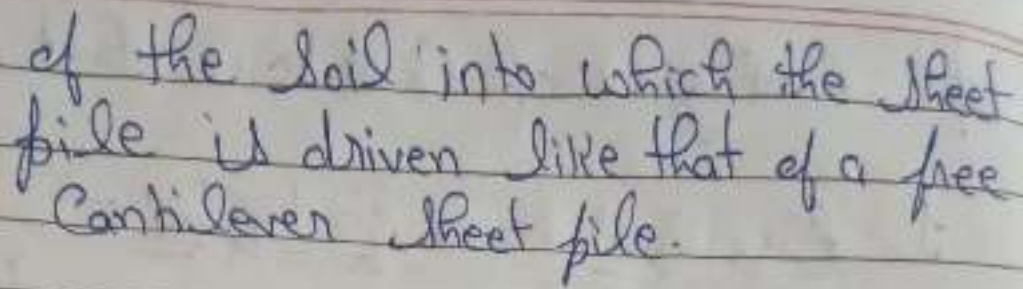 of the soil into which the sheet
pile is driven like that of a free
Cantilever sheet pile.